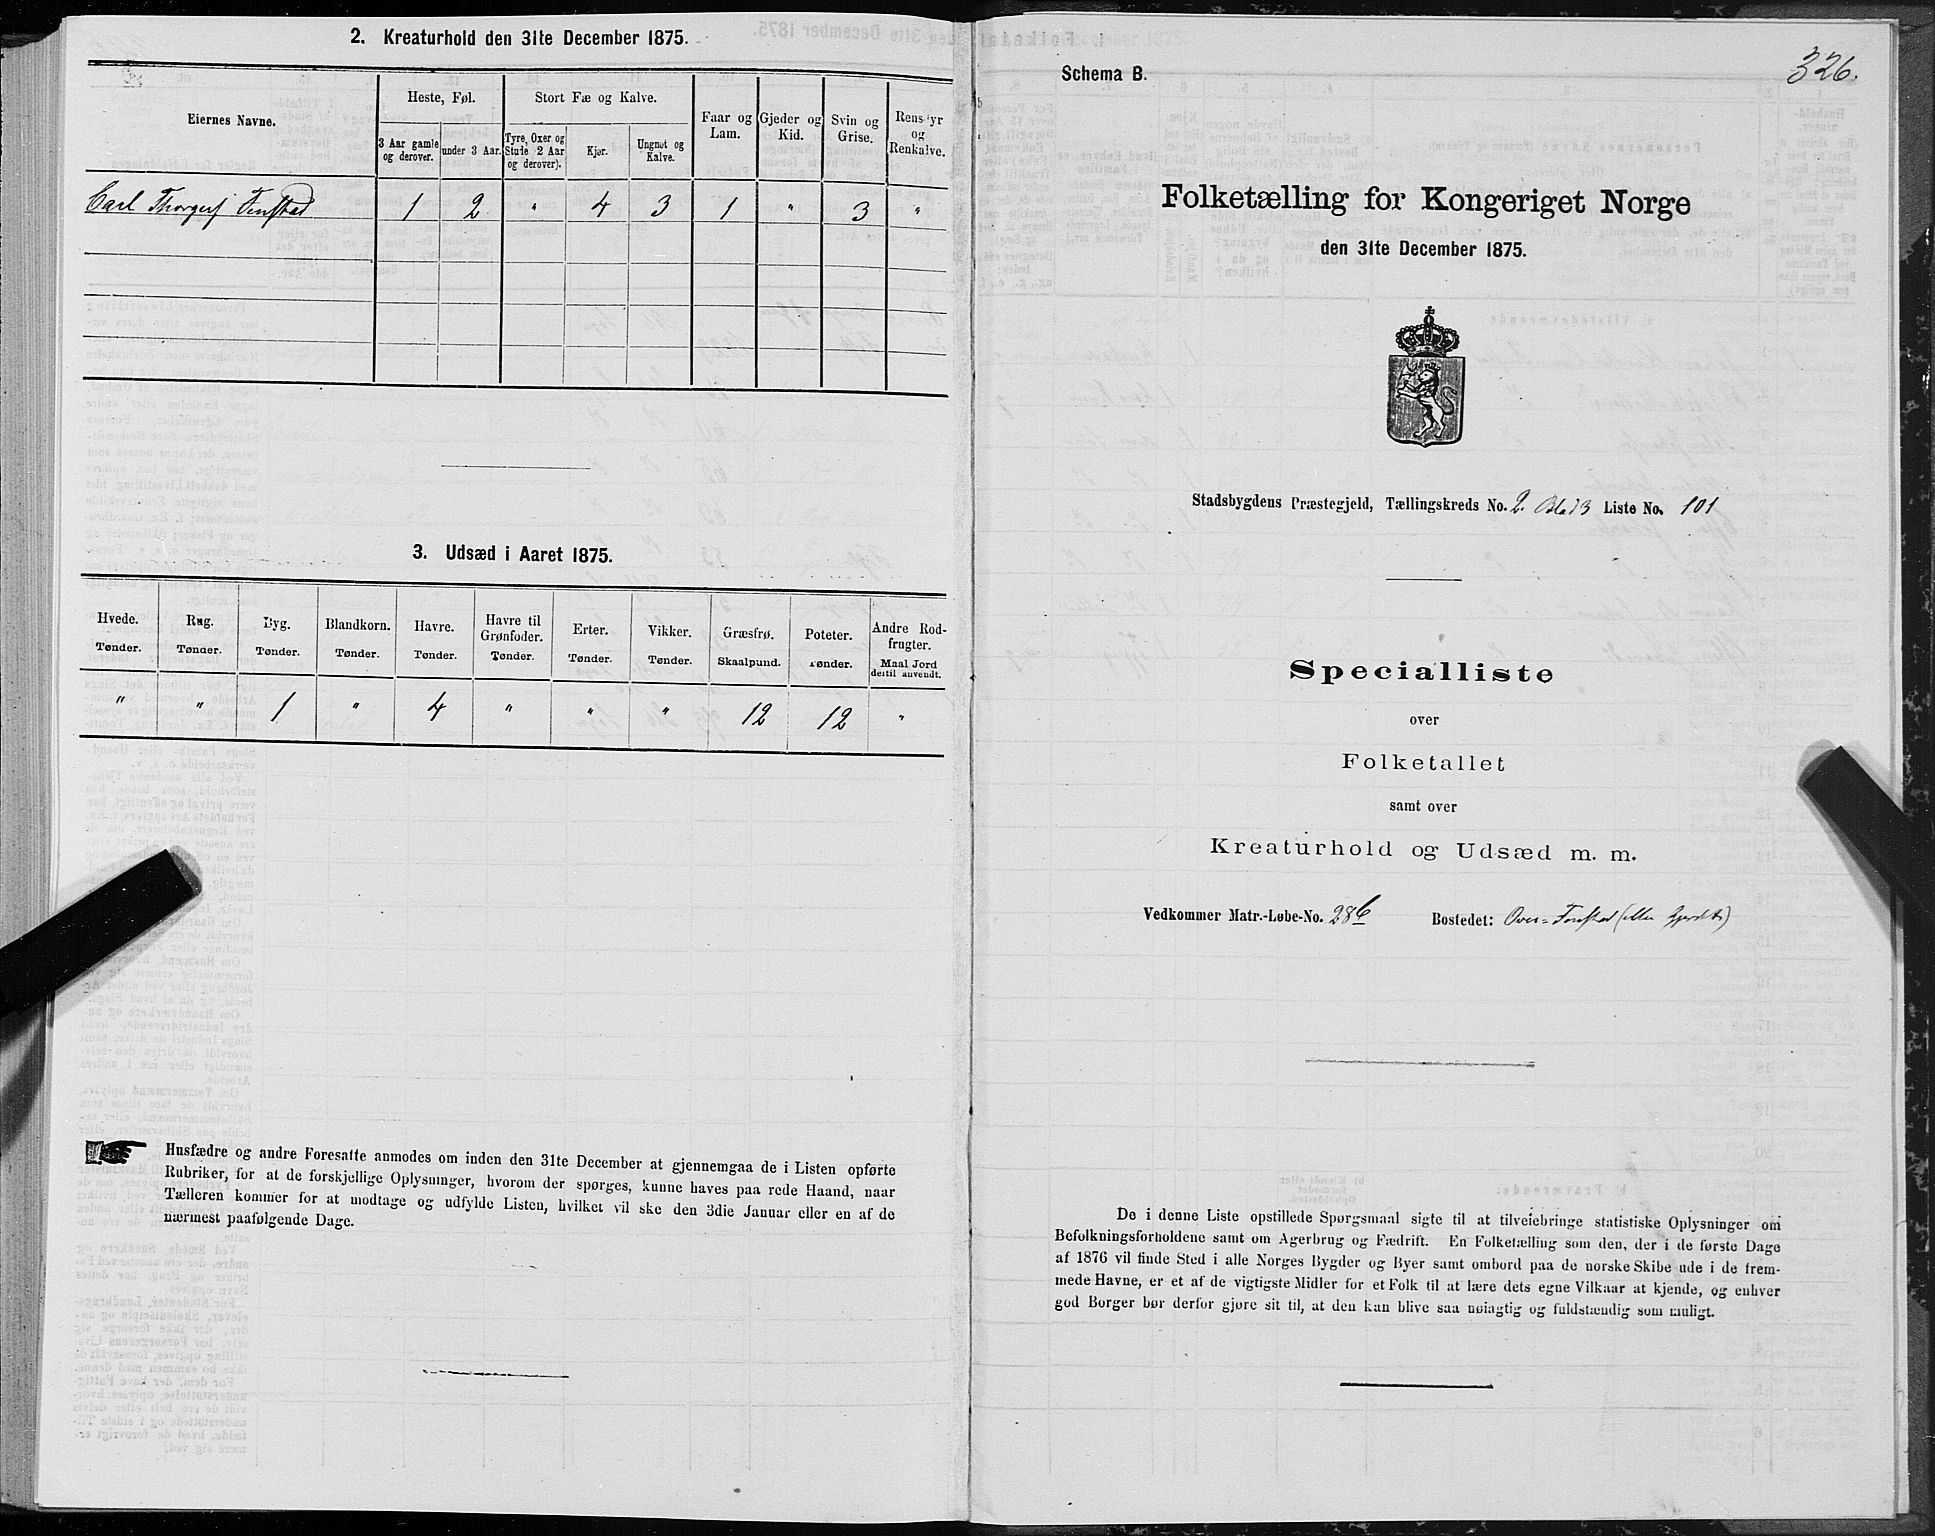 2. Kreaturhold den 31te December 1875.
Eiernes Navne.
Heste, Føl.
Stort Fæ og Kalve.
Faar og Lam.
Gjeder og Kid.
Svin og Grise.
Rensdyr og Renkalve.
3 Aar gamle og derover.
under 3 Aar.
Tyre, Oxer og Stude 2 Aar og derover).
Kjør.
Ungnøt og Kalve.
Carl Thorgersj Fenstad 1 2 " 4 3 1 " 3 "
3. Udsæd i Aaret 1875.
Hvede. Rug. Byg. Blandkorn. Havre. Havre til Grønfoder. Erter. Vikker. Græsfrø. Poteter. Andre Rodfrugter.
Tønder. Tønder. Tønder. Tønder. Tønder. Tønder. Tønder. Tønder. Skaalpund. Tønder. Maal Jord dertil anvendt.
" " 1 " 4 " " " 12 12 "
Husfædre og andre Foresatte anmodes om inden den 31te December at gjennemgaa de i Listen opførte
Rubriker, for at de forskjellige Oplysninger, hvorom der spørges, kunne haves paa rede Haand, naar
Tælleren kommer for at modtage og udfylde Listen, hvilket vil ske den 3die Januar eller en af de
nærmest paafølgende Dage.
326.
Schema B.
Folketælling for Kongeriget Norge
den 31te December 1875.
Stadsbygdens Præstegjeld, Tællingskreds No. 2. Blad 3 Liste No. 101
Specialliste
over
Folketallet
samt over
Kreaturhold og Udsæd m. m.
Vedkommer Matr.-Løbe-No. 286 Bostedet: Over=Fenstad (eller Gjerdet)
De i denne Liste opstillede Spørgsmaal sigte til at tilveiebringe statistiske Oplysninger om
Befolkningsforholdene samt om Agerbrug og Fædrift. En Folketælling som den, der i de første Dage
af 1876 vil finde Sted i alle Norges Bygder og Byer samt ombord paa de norske Skibe ude i de frem-
mede Havne, er et af de vigtigste Midler for et Folk til at lære dets egne Vilkaar at kjende, og enhver
god Borger bør derfor gjøre sit til, at den kan blive saa nøiagtig og fuldstændig som muligt.